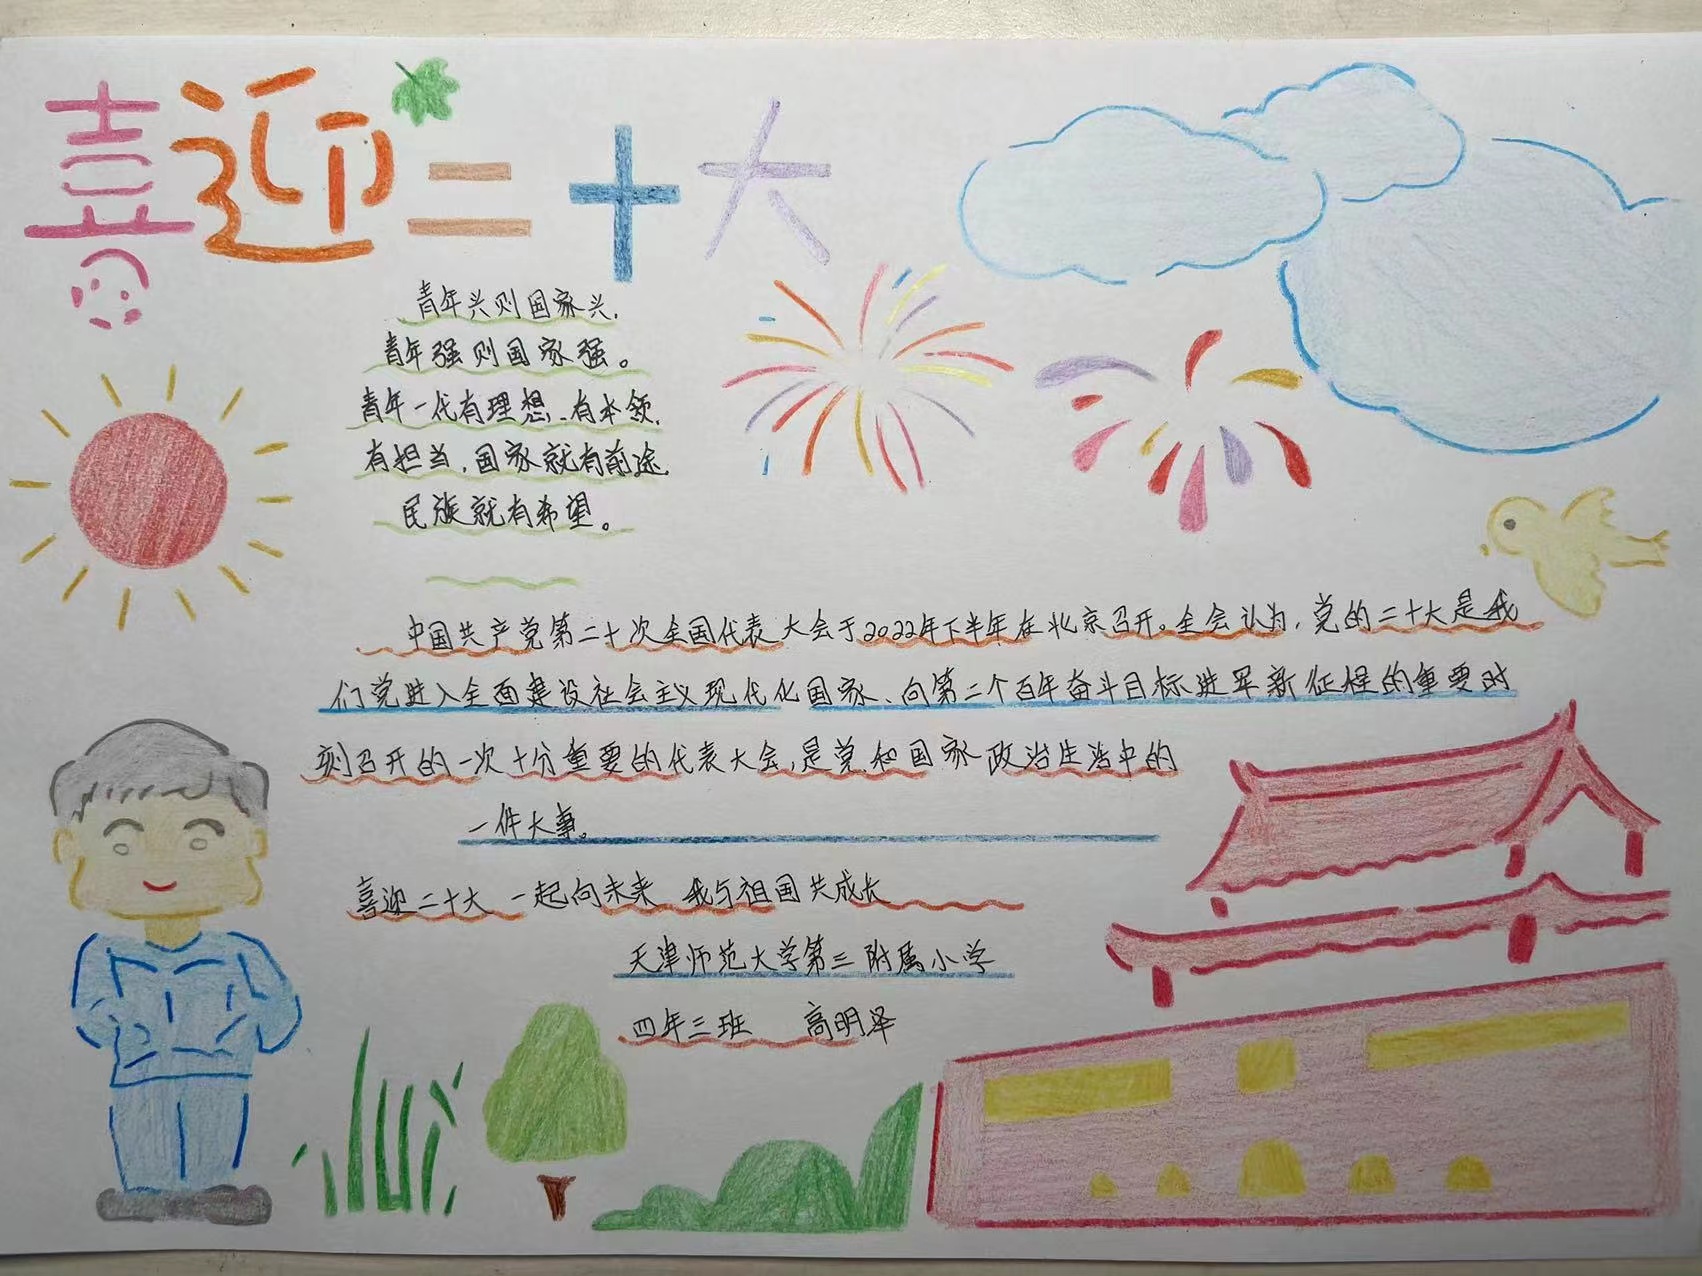 喜迎二十大
青年兴则国家兴,
青年强则国家强。
青年一代有理想、有本领,
有担当,国家就有前途,
民族就有希望。
中国共产党第二十次全国代表大会于2022年下半年在北京召开。全会认为,党的二十大是我
们党进入全面建设社会主义现代化国家、向第二个百年奋斗目标进军新征程的重要时
刻召开的一次十分重要的代表大会,是党和国家政治生活中的
一件大事。
喜迎二十大 一起向未来 我与祖国共成长
天津师范大学第三附属小学
四年三班 高明泽